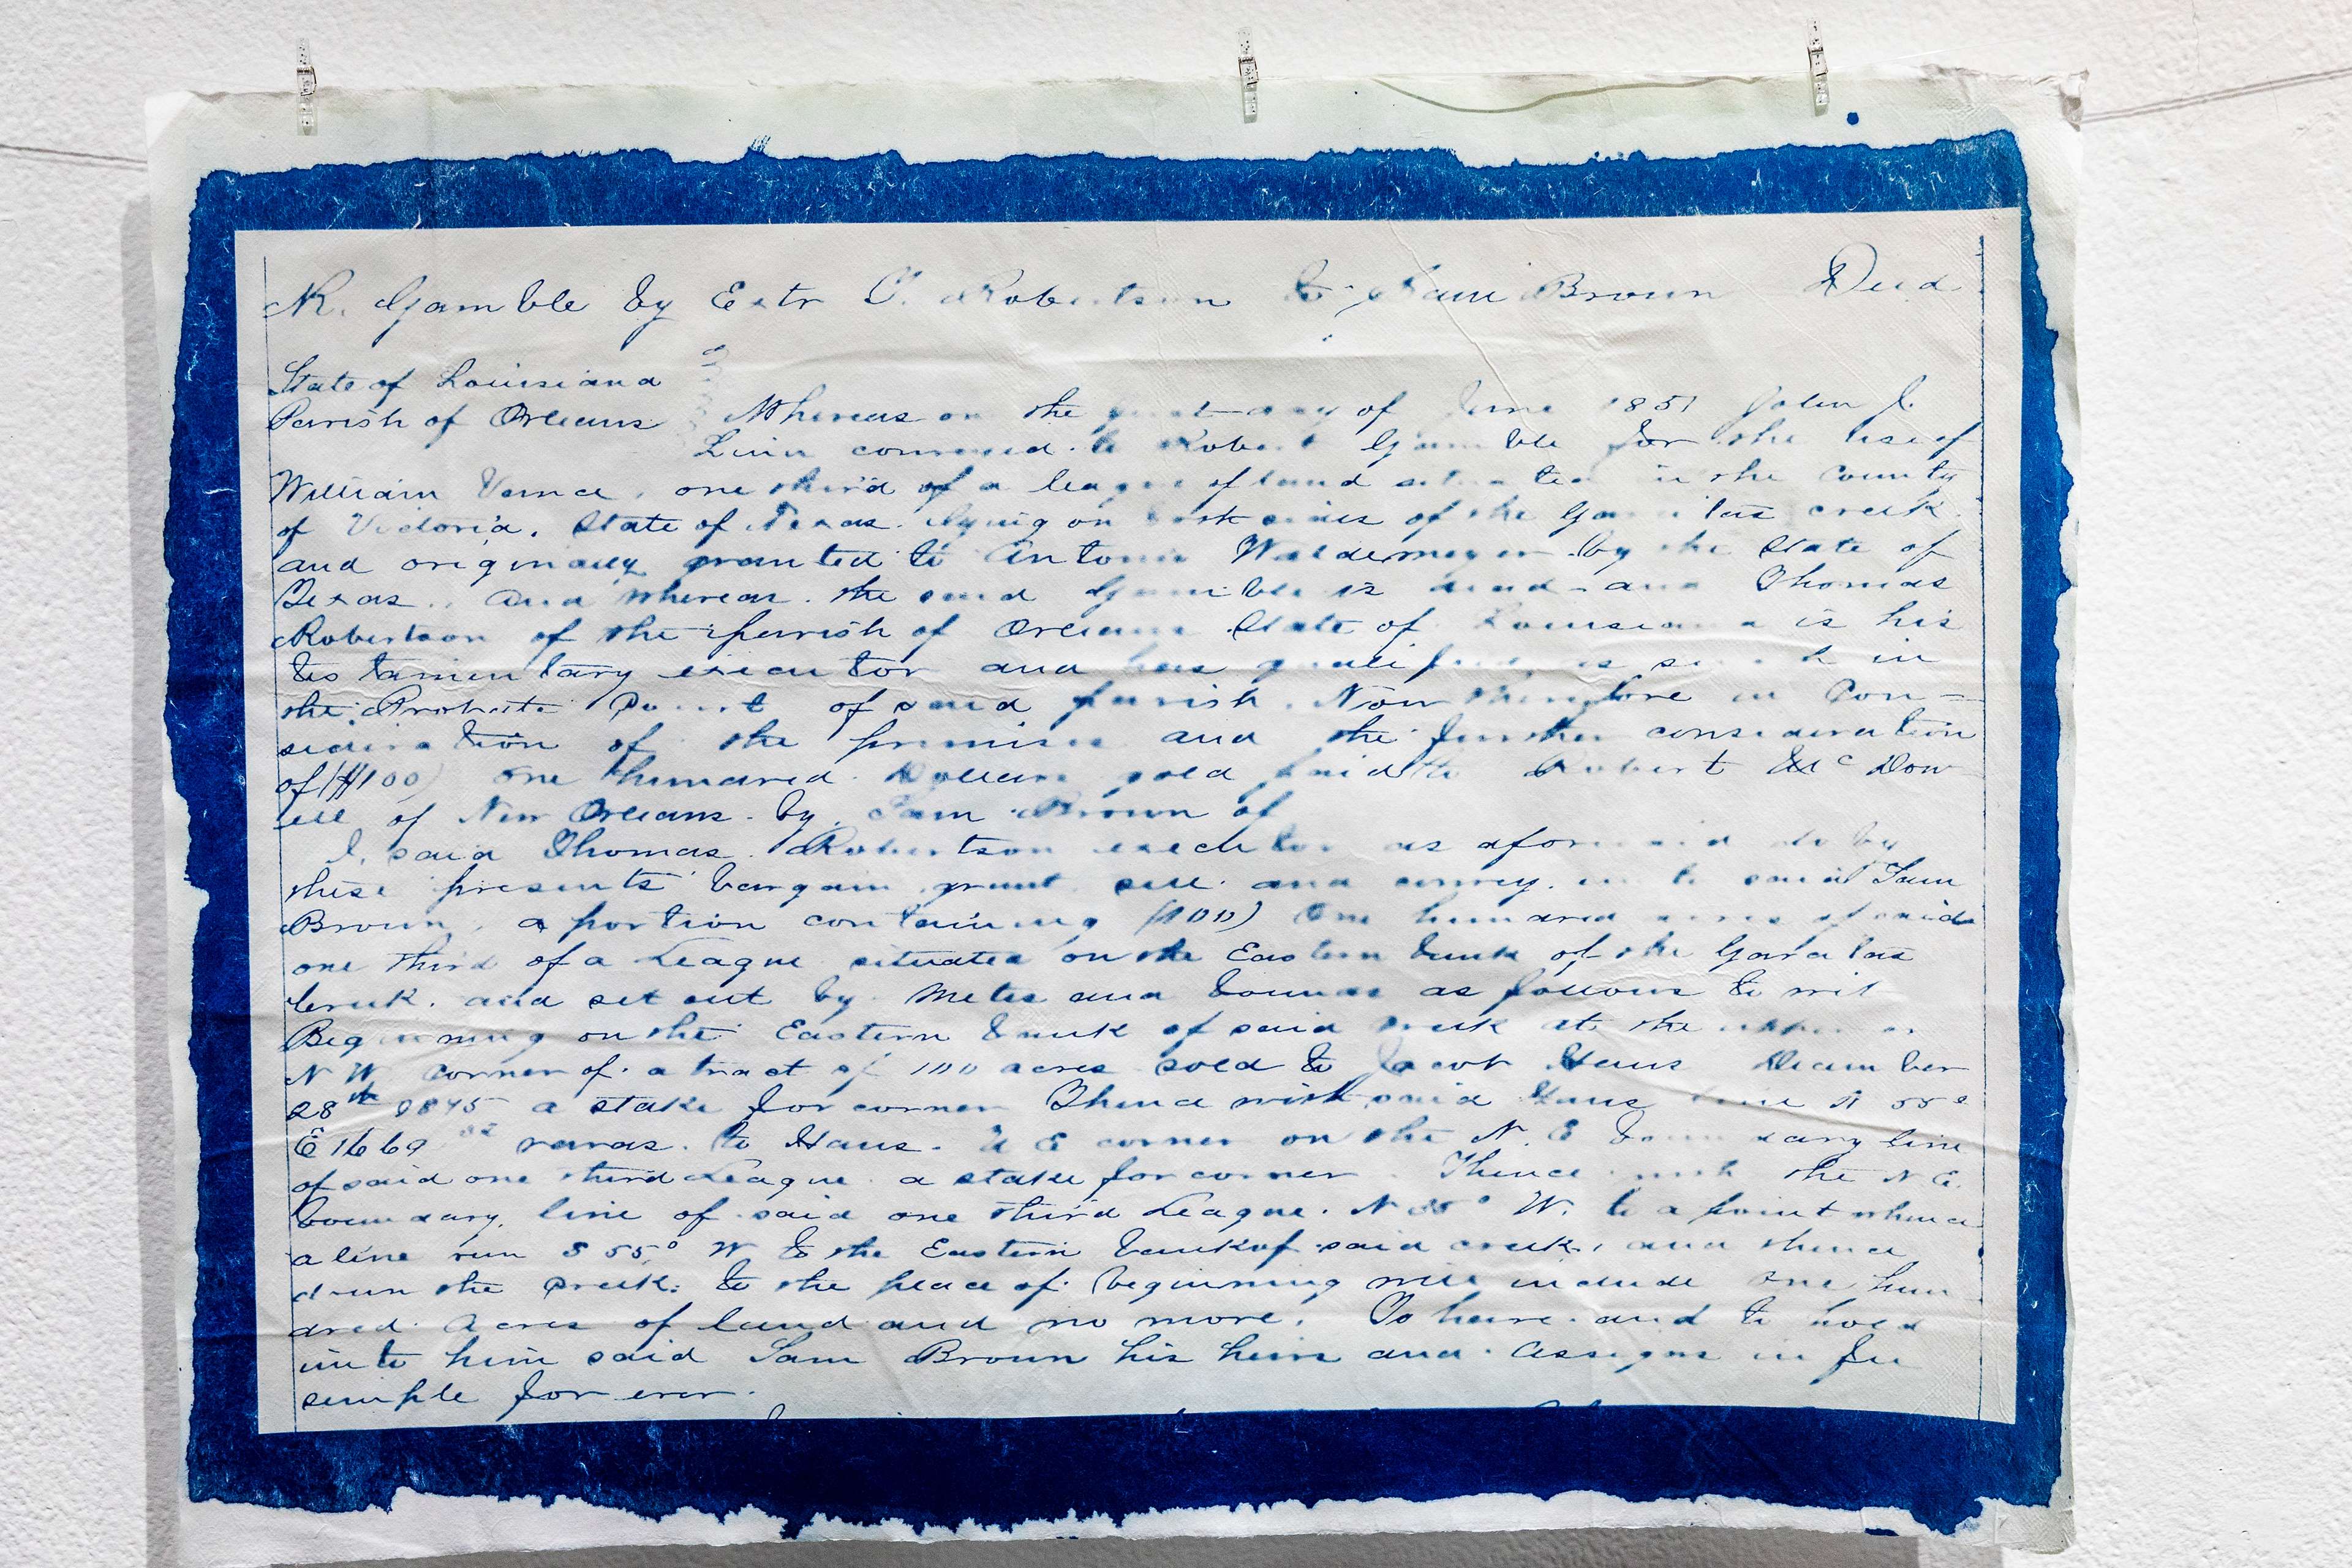 R. Gamble by Extr T. Robertson to Sam Brown Deed
State of Louisiana
Parish of Orleans Whereas on the first day of June 1851 John J.
Linn conveyed to Robert Gamble for the use of
William Vance, one third of a league of land situated in the County
of Victoria, State of Texas. lying on both sides of the Garcitas creek
and originally granted to Antonio by the State of
Texas. And whereas the said Gamble is dead and Thomas
Robertson of the parish of Orleans State of Louisiana is his
testamentary executor and has qualified as such in
the Probate Court of said parish. Now therefore in Con=
sideration of the premises and the further consideration
of ($100) one hundred Dollars gold paid to Robert McDow
ell of New Orleans by Sam Brown of
I, said Thomas Robertson executor as aforesaid do by
these presents bargain, grant, sell and convey unto said Sam
Brown, a portion containing (100) One hundred acres of said
one third of a League situated on the Eastern bank of the Garcitas
Creek. and set out by Metes and bounds as follows to wit
Beginning on the Eastern bank of said creek at the upper or
N W corner of a tract of 100 acres sold to Jacob Haus December
28th 1875 a stake for corner Thence with said Haus line N 55°
E 1669 varas. to Haus. N E corner on the N. E boundary line
of said one third League a stake for corner. Thence with the N E.
boundary line of said one third League. N 35° W. to a point whence
a line run S 55° W to the Eastern bank of said creek, and thence
down the creek. to the place of beginning will include one hun
dred Acres of land and no more. To have and to hold
unto him said Sam Brown his heirs and Assigns in fee
simple for ever.